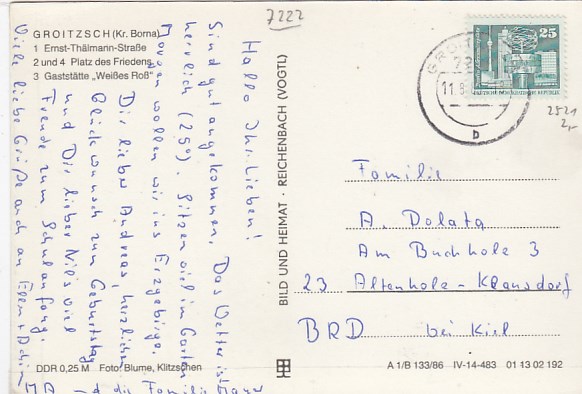 7222
GROITZSCH (Kr. Borna)
1 Ernst-Thälmann-Straße
2 und 4 Platz des Friedens
3 Gaststätte „Weißes Roß"
Hallo Ihr Lieben!
Sind gut angekommen. Das Wetter ist
herrlich (25°). Sitzen viel im Garten
Morgen wollen wir ins Erzgebirge.
Dir lieber Andreas, herzlichen
Glückwunsch zum Geburtstag
und Dir lieber Nils viel
Freude zum Schulanfang.
Viele liebe Grüße auch an Ellen +
und die Familie
DDR 0,25 M Foto: Blume, Klitzschen
BILD UND HEIMAT · REICHENBACH (VOGTL)
GROITZ
722
11.8.
b
25
2521
2,-
Familie
A. Dolata
Am Buchholz 3
23 Altenholz-Klausdorf
BRD bei Kiel
A 1/B 133/86 IV-14-483 01 13 02 192